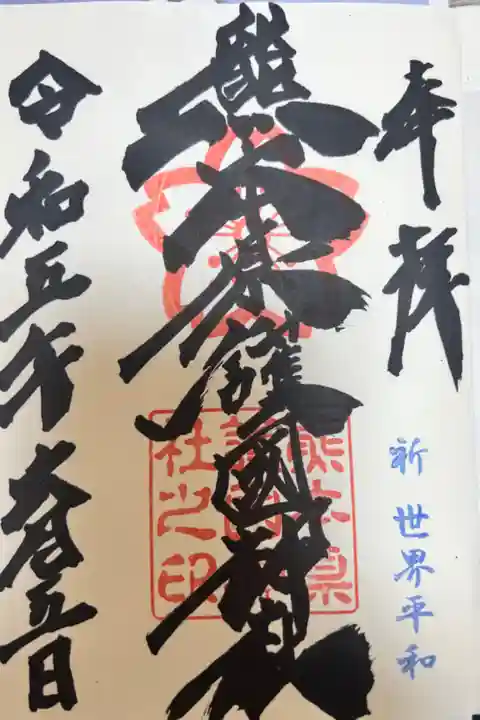 奉拝
祈 世界平和
熊本県護國神社
熊本県護國神社之印
令和五年六月五日